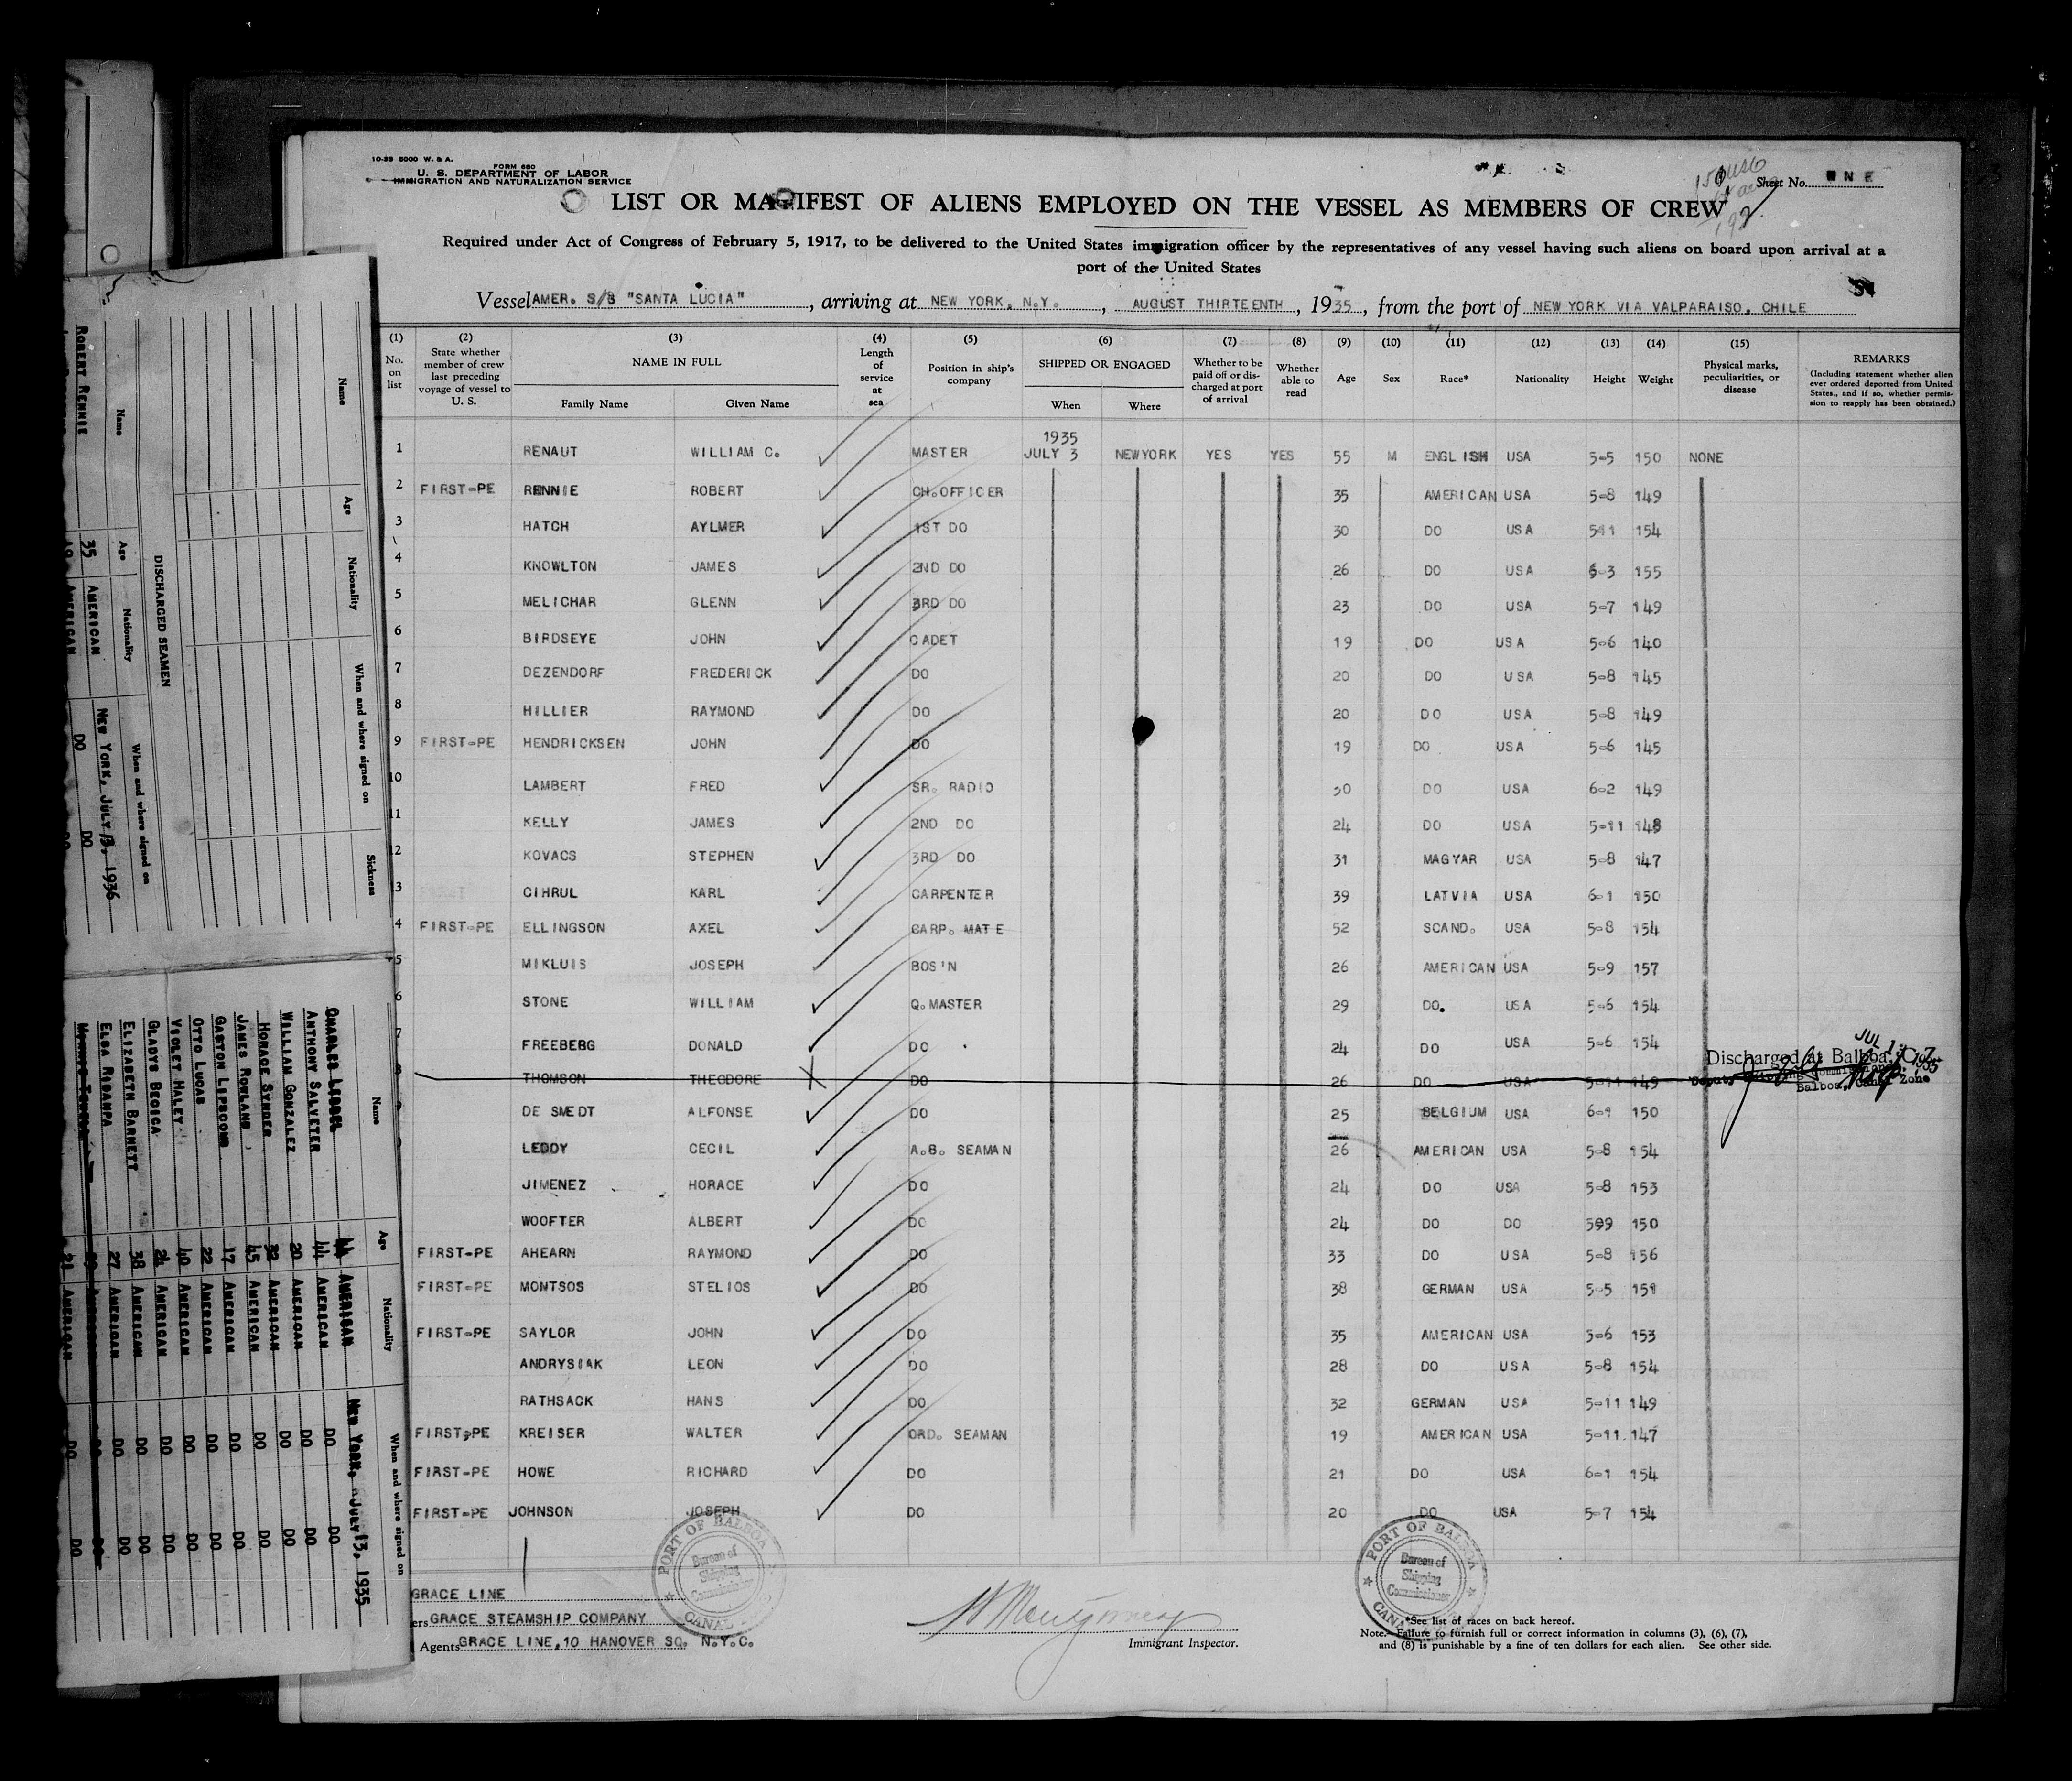 10-33 5000 W. & A.
FORM 680
U. S. DEPARTMENT OF LABOR
IMMIGRATION AND NATURALIZATION SERVICE
Sheet No. ONE
LIST OR MANIFEST OF ALIENS EMPLOYED ON THE VESSEL AS MEMBERS OF CREW
Required under Act of Congress of February 5, 1917, to be delivered to the United States immigration officer by the representatives of any vessel having such aliens on board upon arrival at a
port of the United States
Vessel AMER. S/S "SANTA LUCIA", arriving at NEW YORK, N.Y., AUGUST THIRTEENTH, 1935, from the port of NEW YORK VIA VALPARAISO, CHILE
(1) (2) (3) (4) (5) (6) (7) (8) (9) (10) (11) (12) (13) (14) (15)
No. on list
State whether member of crew last preceding voyage of vessel to U. S.
NAME IN FULL
Family Name
Given Name
Length of service at sea
Position in ship's company
SHIPPED OR ENGAGED
When
Where
Whether to be paid off or discharged at port of arrival
Whether able to read
Age
Sex
Race*
Nationality
Height
Weight
Physical marks, peculiarities, or disease
REMARKS
(Including statement whether alien ever ordered deported from United States, and if so, whether permission to reapply has been obtained.)
1935
1 RENAUT WILLIAM C. MASTER JULY 3 NEWYORK YES YES 55 M ENGLISH USA 5-5 150 NONE
2 FIRST-PE RENNIE ROBERT CH.OFFICER 35 AMERICAN USA 5-8 149
3 HATCH AYLMER 1ST DO 30 DO USA 5-11 154
4 KNOWLTON JAMES 2ND DO 26 DO USA 6-3 155
5 MELICHAR GLENN 3RD DO 23 DO USA 5-7 149
6 BIRDSEYE JOHN CADET 19 DO USA 5-6 140
7 DEZENDORF FREDERICK DO 20 DO USA 5-8 145
8 HILLIER RAYMOND DO 20 DO USA 5-8 149
9 FIRST-PE HENDRICKSEN JOHN DO 19 DO USA 5-6 145
10 LAMBERT FRED SR. RADIO 30 DO USA 6-2 149
11 KELLY JAMES 2ND DO 24 DO USA 5-11 148
2 KOVACS STEPHEN 3RD DO 31 MAGYAR USA 5-8 147
3 CIHRUL KARL CARPENTER 39 LATVIA USA 6-1 150
4 FIRST-PE ELLINGSON AXEL CARP. MATE 52 SCAND. USA 5-8 154
5 MIKLUIS JOSEPH BOS'N 26 AMERICAN USA 5-9 157
6 STONE WILLIAM Q.MASTER 29 DO. USA 5-6 154
7 FREEBERG DONALD DO 24 DO USA 5-6 154
8 THOMSON THEODORE DO 26 DO USA 5-11 149 Discharged at Balboa, C. Z.
Balboa, Canal Zone
9 DE SMEDT ALFONSE DO 25 BELGIUM USA 6-1 150
LEDDY CECIL A.B. SEAMAN 26 AMERICAN USA 5-8 154
JIMENEZ HORACE DO 24 DO USA 5-8 153
WOOFTER ALBERT DO 24 DO DO 599 150
FIRST-PE AHEARN RAYMOND DO 33 DO USA 5-8 156
FIRST-PE MONTSOS STELIOS DO 38 GERMAN USA 5-5 151
FIRST-PE SAYLOR JOHN DO 35 AMERICAN USA 5-6 153
ANDRYSIAK LEON DO 28 DO USA 5-8 154
RATHSACK HANS DO 32 GERMAN USA 5-11 149
FIRST-PE KREISER WALTER ORD. SEAMAN 19 AMERICAN USA 5-11 147
FIRST-PE HOWE RICHARD DO 21 DO USA 6-1 154
FIRST-PE JOHNSON JOSEPH DO 20 DO USA 5-7 154
PORT OF BALBOA
Bureau of
Shipping
Commissioner
CANAL
PORT OF BALBOA
Bureau of
Shipping
Commissioner
CANAL
GRACE LINE
ers GRACE STEAMSHIP COMPANY
Agents GRACE LINE, 10 HANOVER SQ. N.Y.C.
Montgomery
Immigrant Inspector.
*See list of races on back hereof.
Note.—Failure to furnish full or correct information in columns (3), (6), (7),
and (8) is punishable by a fine of ten dollars for each alien. See other side.
Name Age Nationality When and where signed on Sickness
DISCHARGED SEAMEN
Name Age Nationality When and where signed on
ROBERT RENNIE 35 AMERICAN NEW YORK, JULY 13, 1936
Name Age Nationality When and where signed on
NEW YORK, JULY 13, 1935
CHARLES LEIDEL 44 AMERICAN DO DO
ANTHONY SALVETER 44 AMERICAN DO DO
WILLIAM GONZALEZ 20 AMERICAN DO DO
HORACE SYNDER 32 AMERICAN DO DO
JAMES ROWLAND 45 AMERICAN DO DO
GASTON LIPSCOMB 17 AMERICAN DO DO
OTTO LUCAS 22 AMERICAN DO DO
VIOLET HALEY 40 AMERICAN DO DO
GLADYS BEGICA 24 AMERICAN DO DO
ELIZABETH BARNETT 38 AMERICAN DO DO
ELSA RABANDA 27 AMERICAN DO DO
21 AMERICAN DO DO